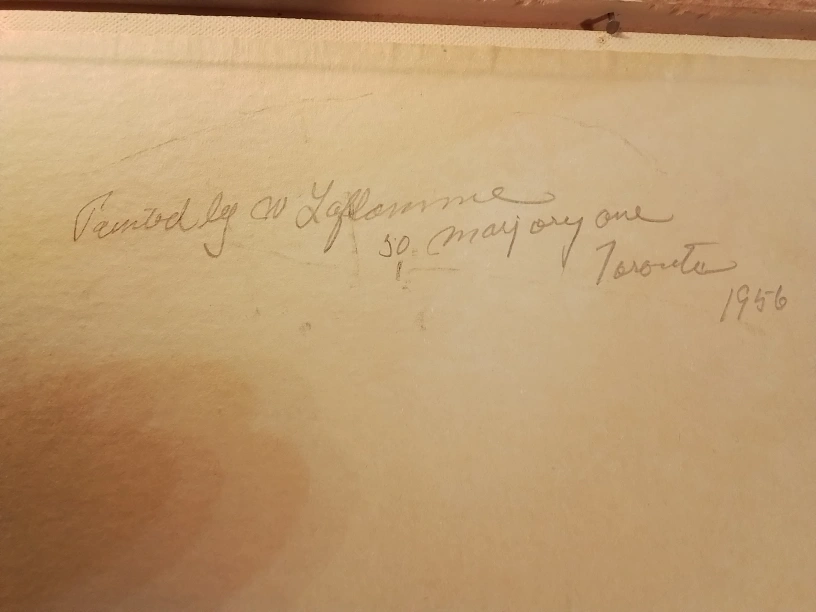 Painted by W Laflamme
50 Marjory ave
Toronto
1956